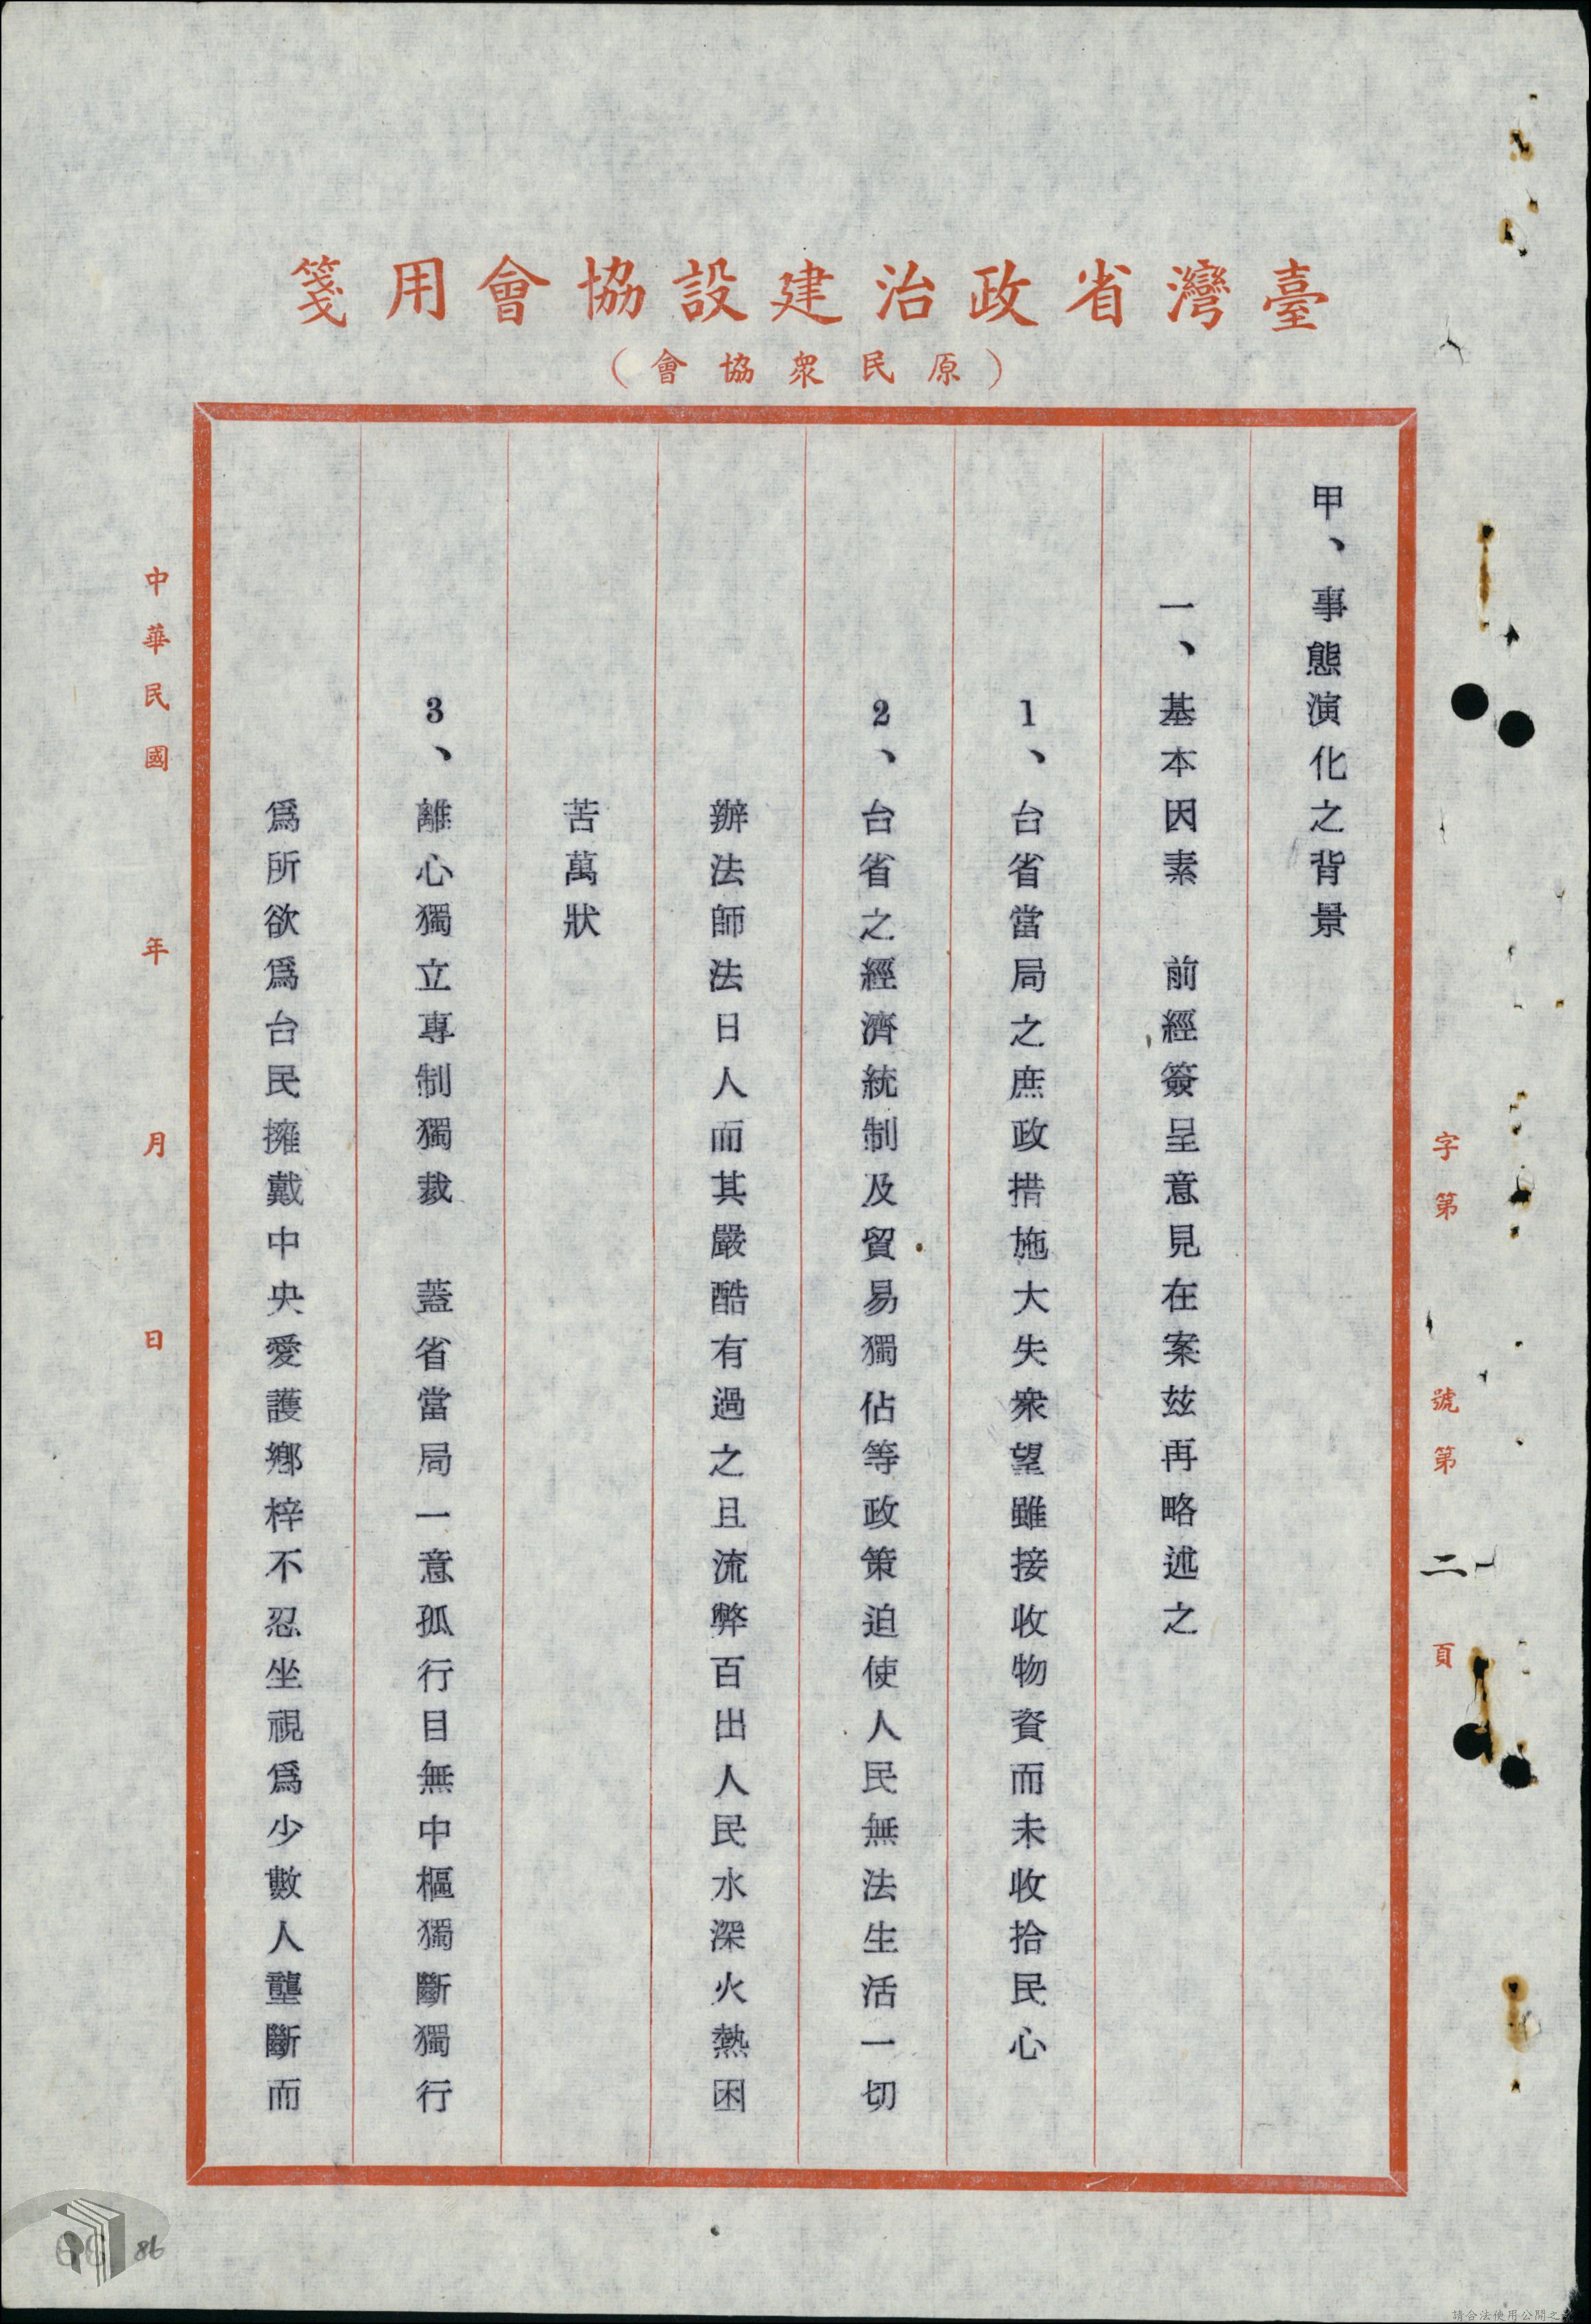 臺灣省政治建設協會用箋
（原民眾協會）
字第　號第二頁
甲、事態演化之背景
一、基本因素　前經簽呈意見在案玆再略述之
1、台省當局之庶政措施大失衆望雖接收物資而未收拾民心
2、台省之經濟統制及貿易獨佔等政策迫使人民無法生活一切
辦法師法日人而其嚴酷有過之且流弊百出人民水深火熱困
苦萬狀
3、離心獨立專制獨裁　蓋省當局一意孤行目無中樞獨斷獨行
爲所欲爲台民擁戴中央愛護鄕梓不忍坐視爲少數人壟斷而
中華民國　年　月　日
86